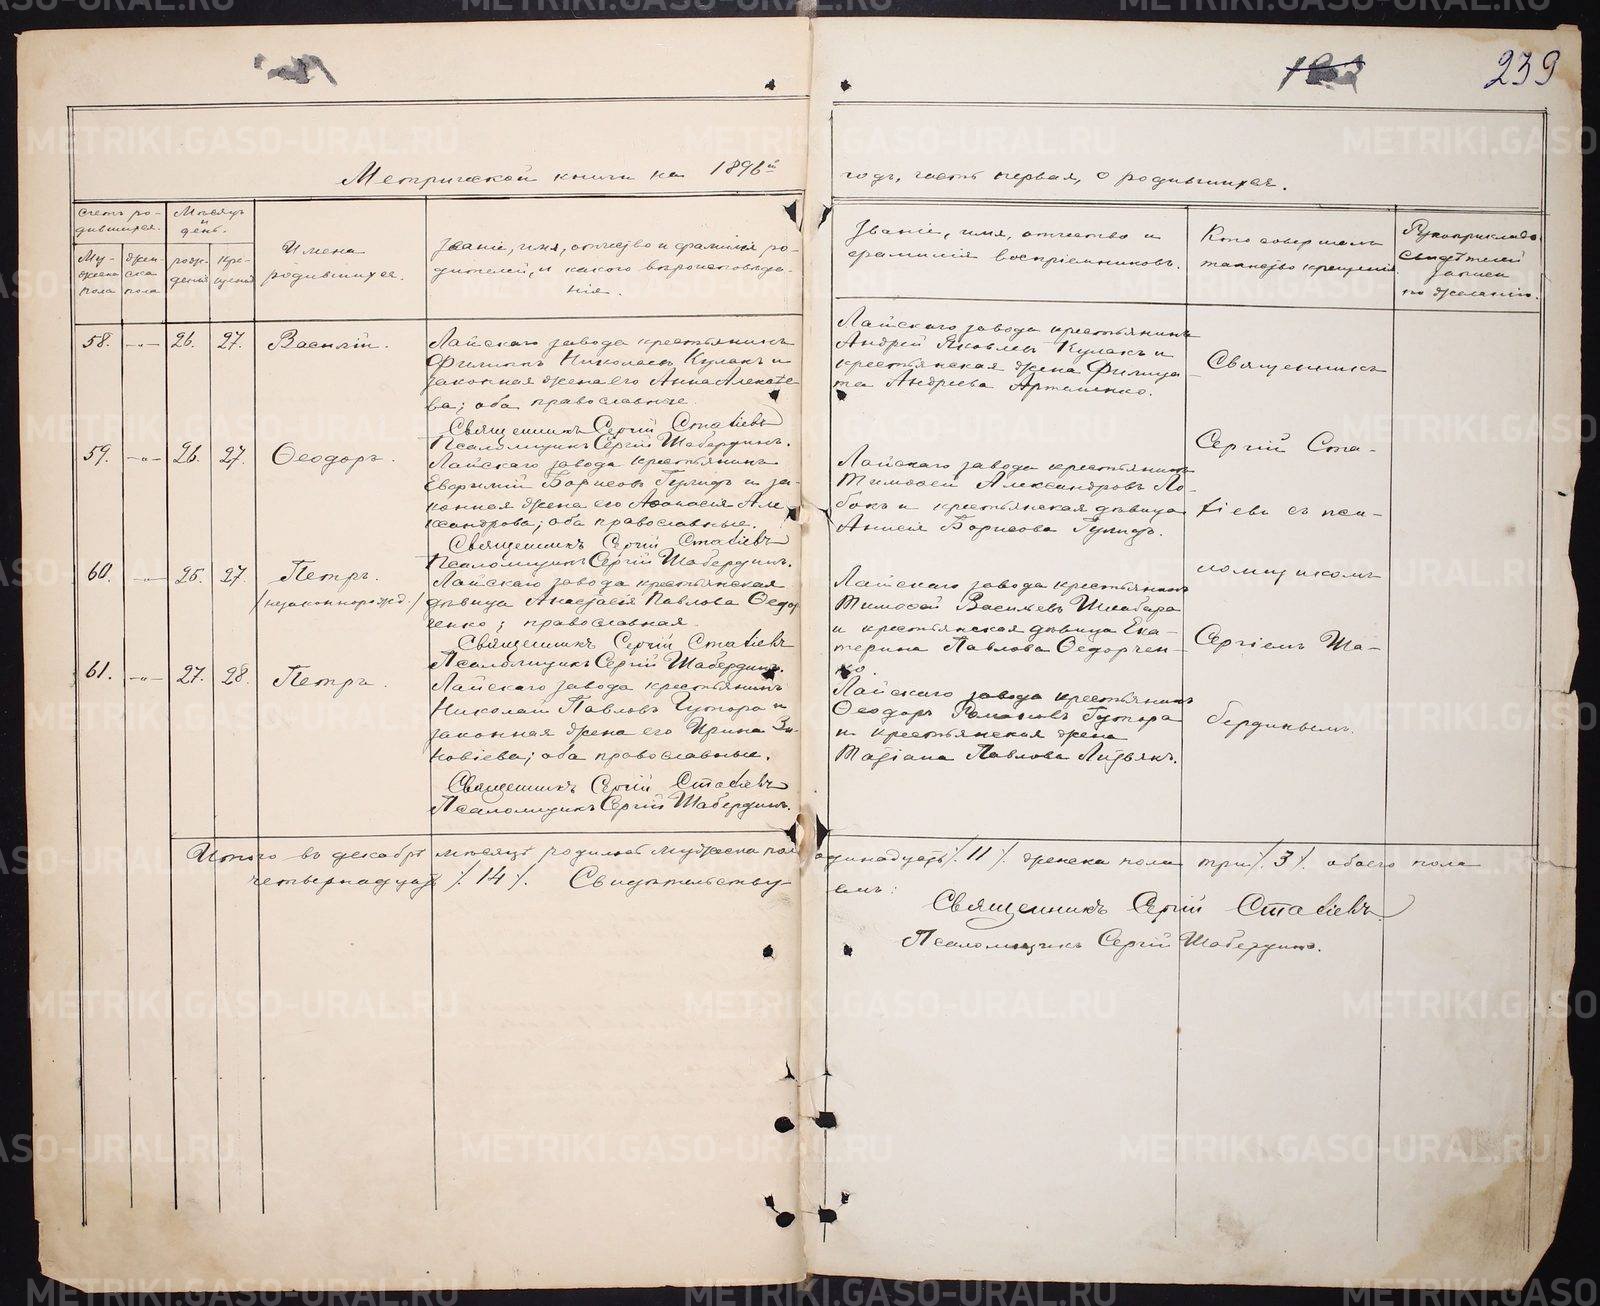 239
Метрической книги на 1896й
годъ, часть первая, о родившихся.
Счетъ ро-
дившихся.
Мѣсяцъ
и
день.
Му-
жеска
пола
Жен-
ска
пола
рож-
денія
кре-
щенія
Имена
родившихся.
Званіе, имя, отчество и фамилія ро-
дителей, и какого вѣроисповѣда-
нія.
Званіе, имя, отчество и
фамилія воспріемниковъ.
Кто совершалъ
таинство крещенія
Рукоприкладс.
свидѣтелей
записи
по желанію.
58. -„- 26. 27. Василій.
Лайскаго завода крестьянинъ
Филиппъ Николаевъ Кулакъ и
законная жена его Анна Алексѣе
ва; оба православные.
Священникъ Сергій Статіевъ
Псаломщикъ Сергій Шабердинъ.
Лайскаго завода крестьянинъ
Андрей Яковлевъ Кулакъ и
крестьянская жена Филица
та Андреева Артеменко.
59. -„- 26. 27. Ѳеодоръ.
Лайскаго завода крестьянинъ
Евфимій Борисовъ Гулидъ и за-
конная жена его Аѳанасія Але
ксандрова; оба православные.
Священникъ Сергій Статіевъ
Псаломщикъ Сергій Шабердинъ.
Лайскаго завода крестьянинъ
Тимоѳей Александровъ Ло-
бокъ и крестьянская дѣвица
Анисія Борисова Гулидъ.
60. -„- 25. 27. Петръ.
/незаконнорожд./
Лайскаго завода крестьянская
дѣвица Анастасія Павлова Ѳедор
ченко; православная.
Священникъ Сергій Статіевъ
Псаломщикъ Сергій Шабердинъ.
Лайскаго завода крестьянинъ
Тимоѳей Васильевъ Шкабара
и крестьянская дѣвица Ека-
терина Павлова Ѳедорчен-
ко.
61. -„- 27. 28. Петръ.
Лайскаго завода крестьянинъ
Николай Павловъ Гутора и
законная жена его Ирина Зи-
новіева; оба православные.
Священникъ Сергій Статіевъ
Псаломщикъ Сергій Шабердинъ.
Лайскаго завода крестьянинъ
Ѳеодоръ Романовъ Гутора
и крестьянская жена
Татіана Павлова Литвякъ.
Священникъ
Сергій Ста-
тіевъ съ пса-
ломщикомъ
Сергіемъ Ша-
бердинымъ.
Итого въ декабрѣ мѣсяцѣ родилось мужеска пола одинадцать ٪ 11 ٪ женска пола три ٪ 3 ٪ обоего пола
четырнадцать ٪ 14 ٪. Свидѣтельству-
емъ:
Священникъ Сергій Статіевъ
Псаломщикъ Сергій Шабердинъ.
METRIKI.GASO-URAL.RU